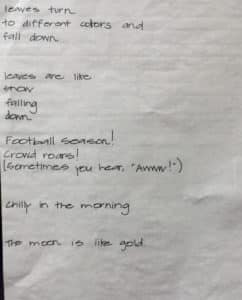 leaves turn
to different colors and
fall down
leaves are like
snow
falling
down
Football season!
Crowd roars!
(Sometimes you hear, "Awww!")
chilly in the morning
The moon is like gold.